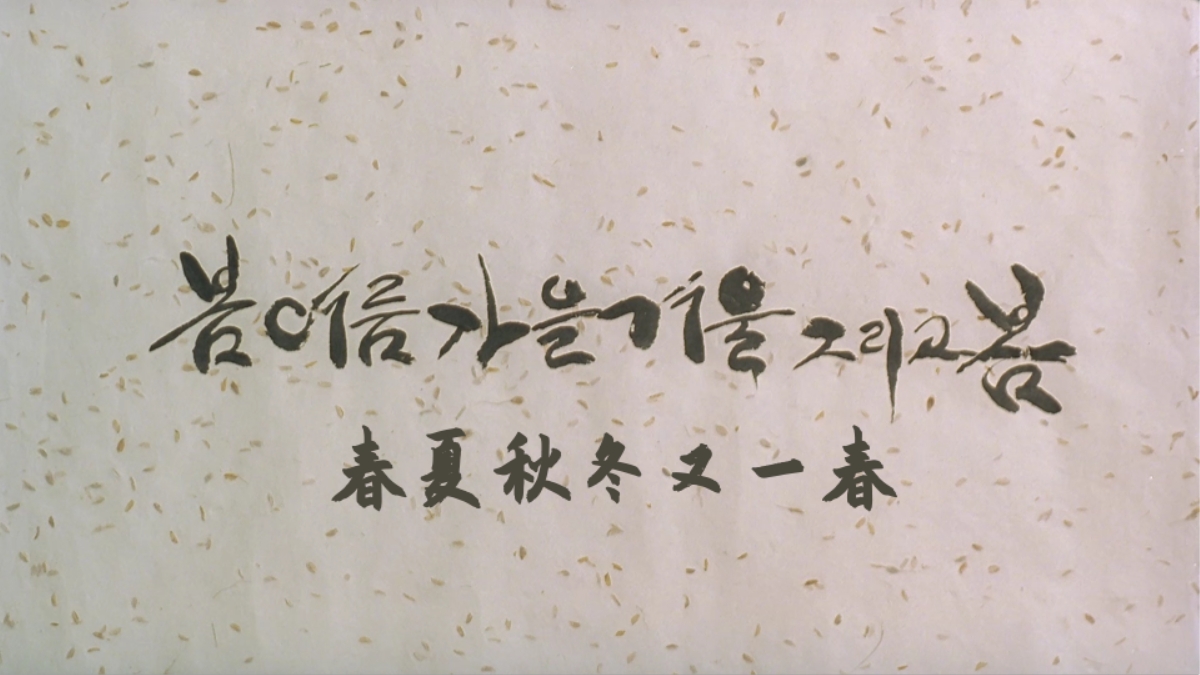 봄여름가을겨울 그리고 봄
春夏秋冬又一春